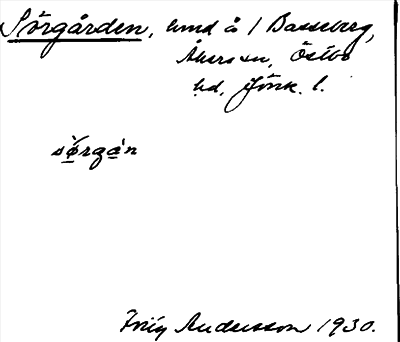 Sörgården, hmd å 1 Basseberg,
Åkers sn, Östbo
hd, Jönk. l.
sørgan
Fritz Andersson 1930.